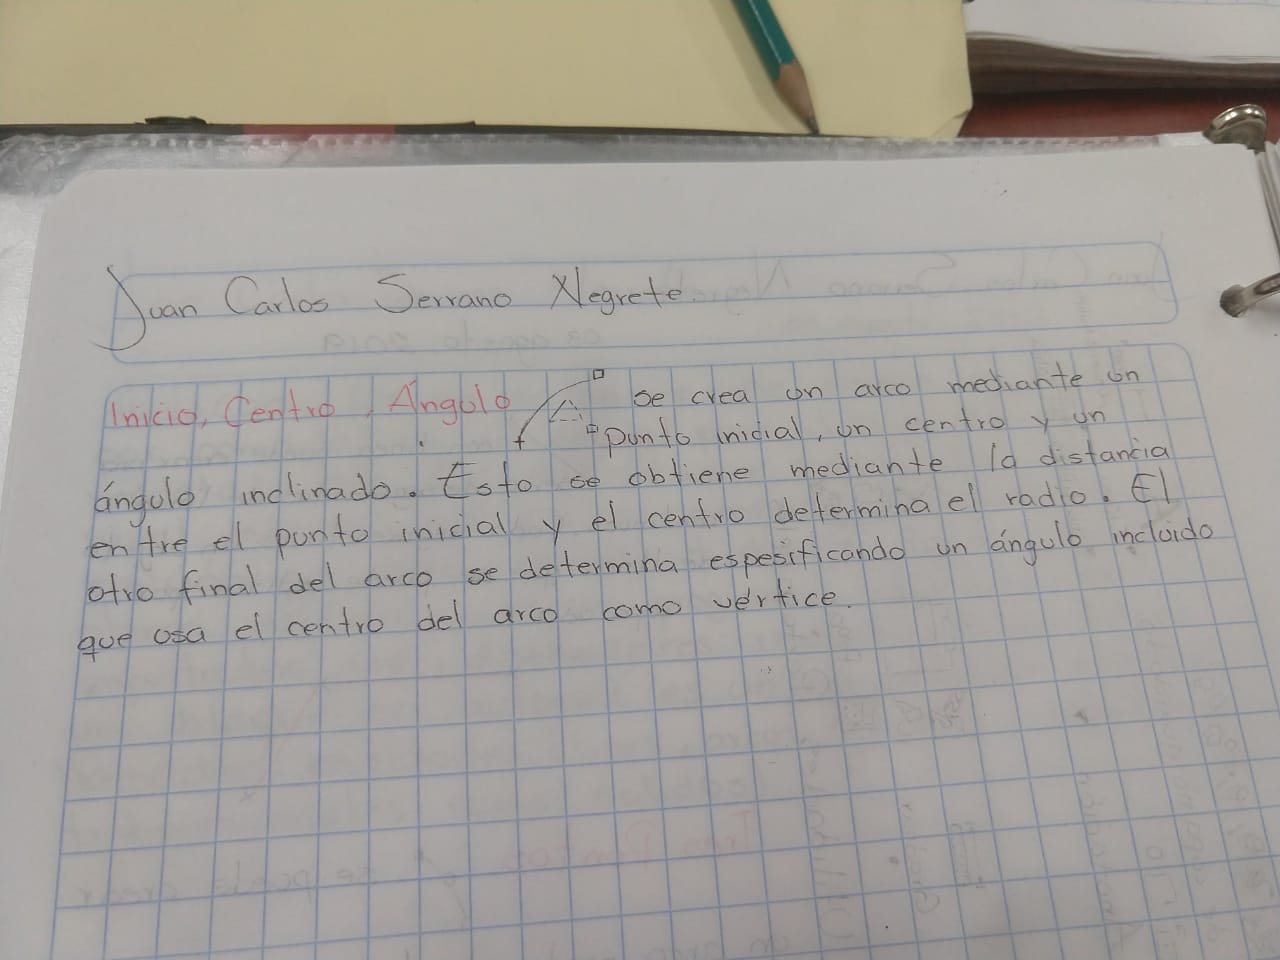 Juan Carlos Serrano Negrete.
Inicio, Centro, Ángulo se crea un arco mediante un
punto inicial, un centro y un
ángulo inclinado. Esto se obtiene mediante la distancia
entre el punto inicial y el centro determina el radio. El
otro final del arco se determina espesificando un ángulo incluido
que usa el centro del arco como vértice.